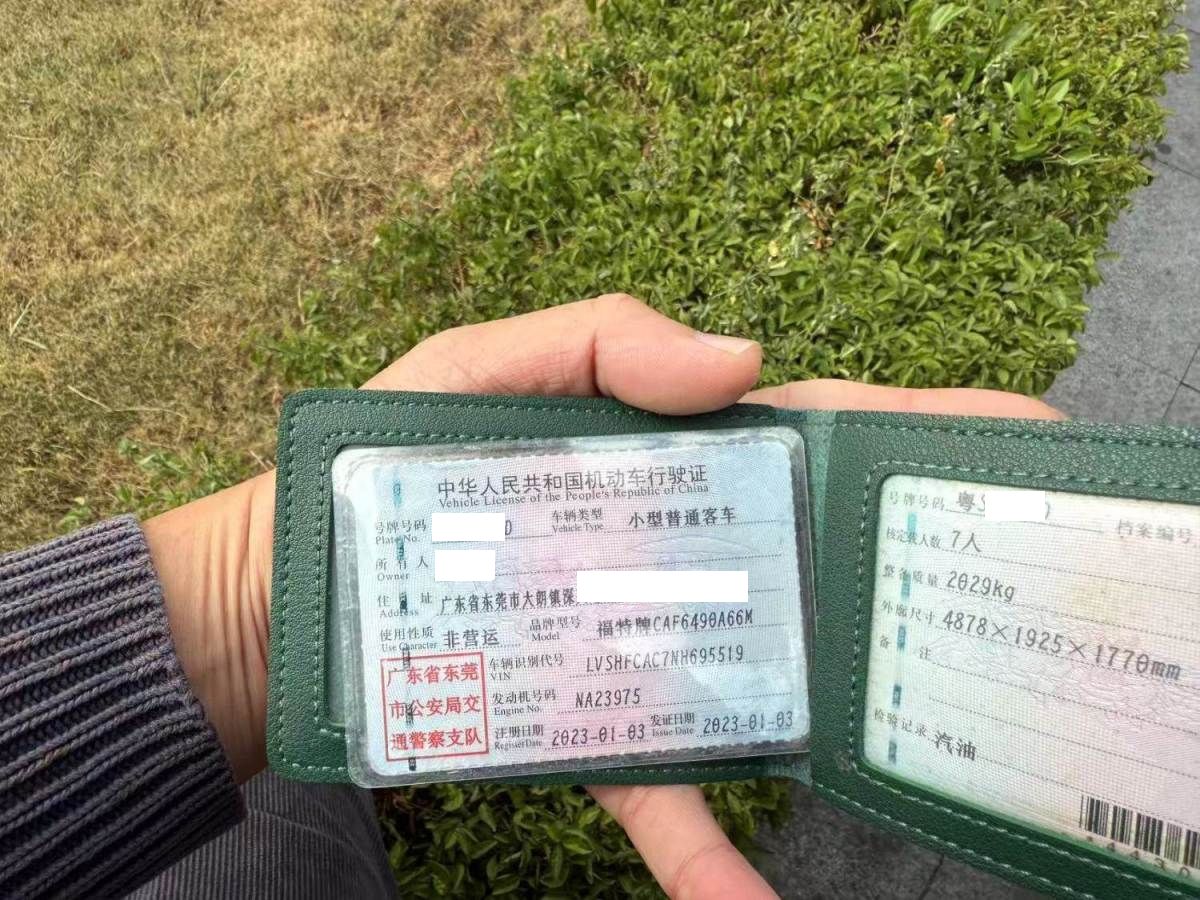 中华人民共和国机动车行驶证
Vehicle License of the People's Republic of China
号牌号码 D 车辆类型 小型普通客车
Plate No. Vehicle Type
所有人
Owner
住址 广东省东莞市大朗镇深
Address
使用性质 非营运 品牌型号 福特牌CAF6490A66M
Use Character Model
广东省东莞
市公安局交
通警察支队
车辆识别代号 LVSHFCAC7NH695519
VIN
发动机号码 NA23975
Engine No.
注册日期 2023-01-03 发证日期 2023-01-03
Register Date Issue Date
号牌号码 粤S 档案编号
核定载人数 7人
整备质量 2029kg
外廓尺寸 4878×1925×1770mm
备注
检验记录 汽油